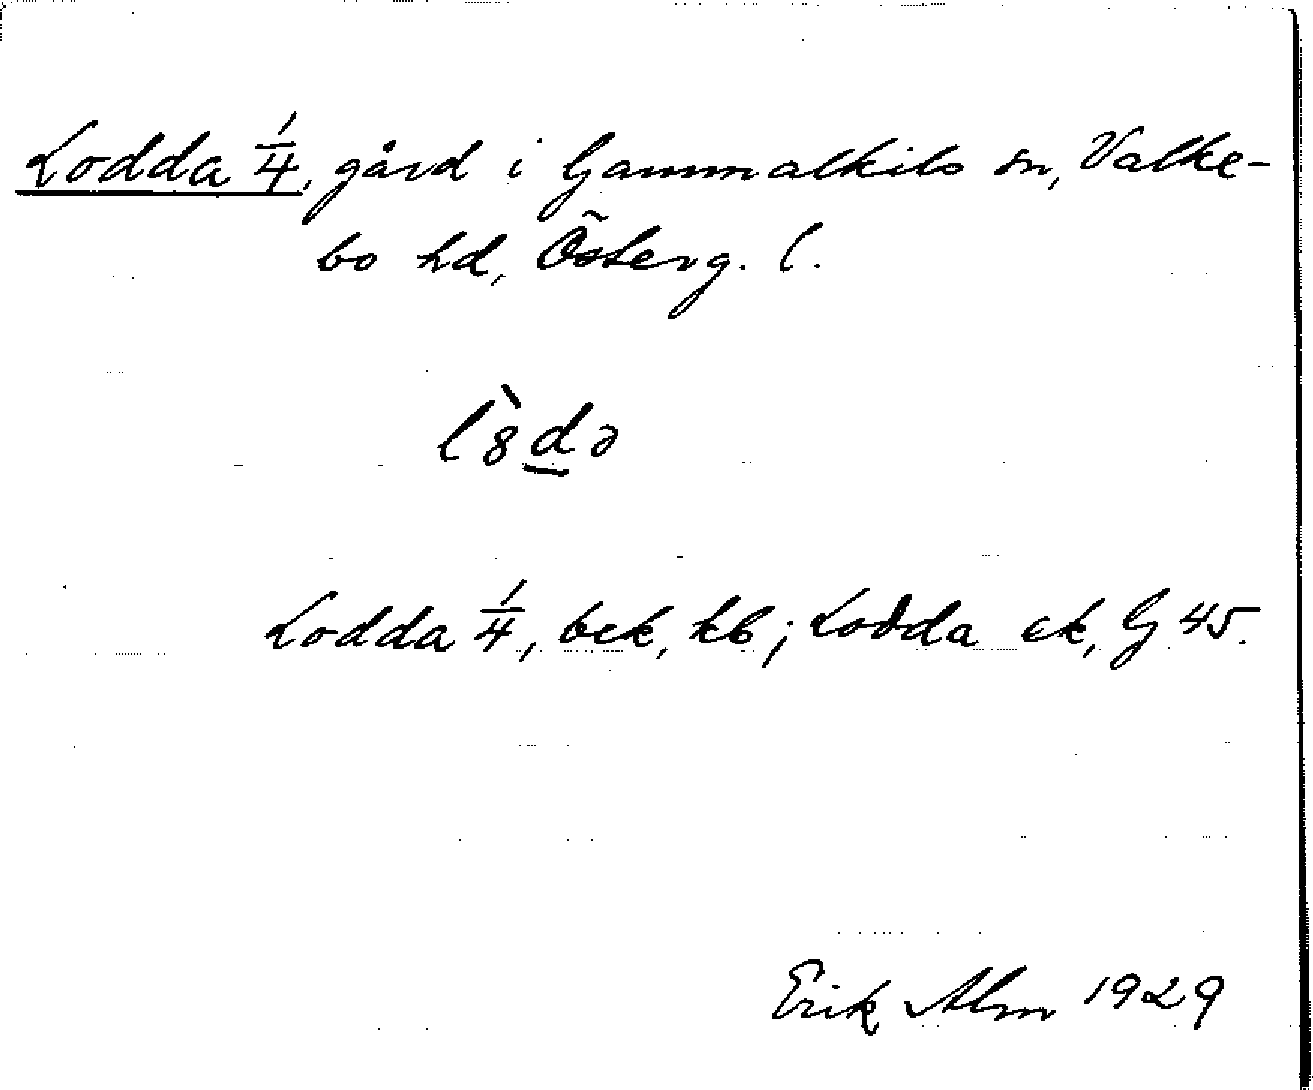 Lodda 1/4, gård i Gammalkils sn, Valke-
bo hd, Österg. l.
l8̀d̲ə
Lodda 1/4, bek, kb; Lodda ek, G 45.
Erik Alm 1929